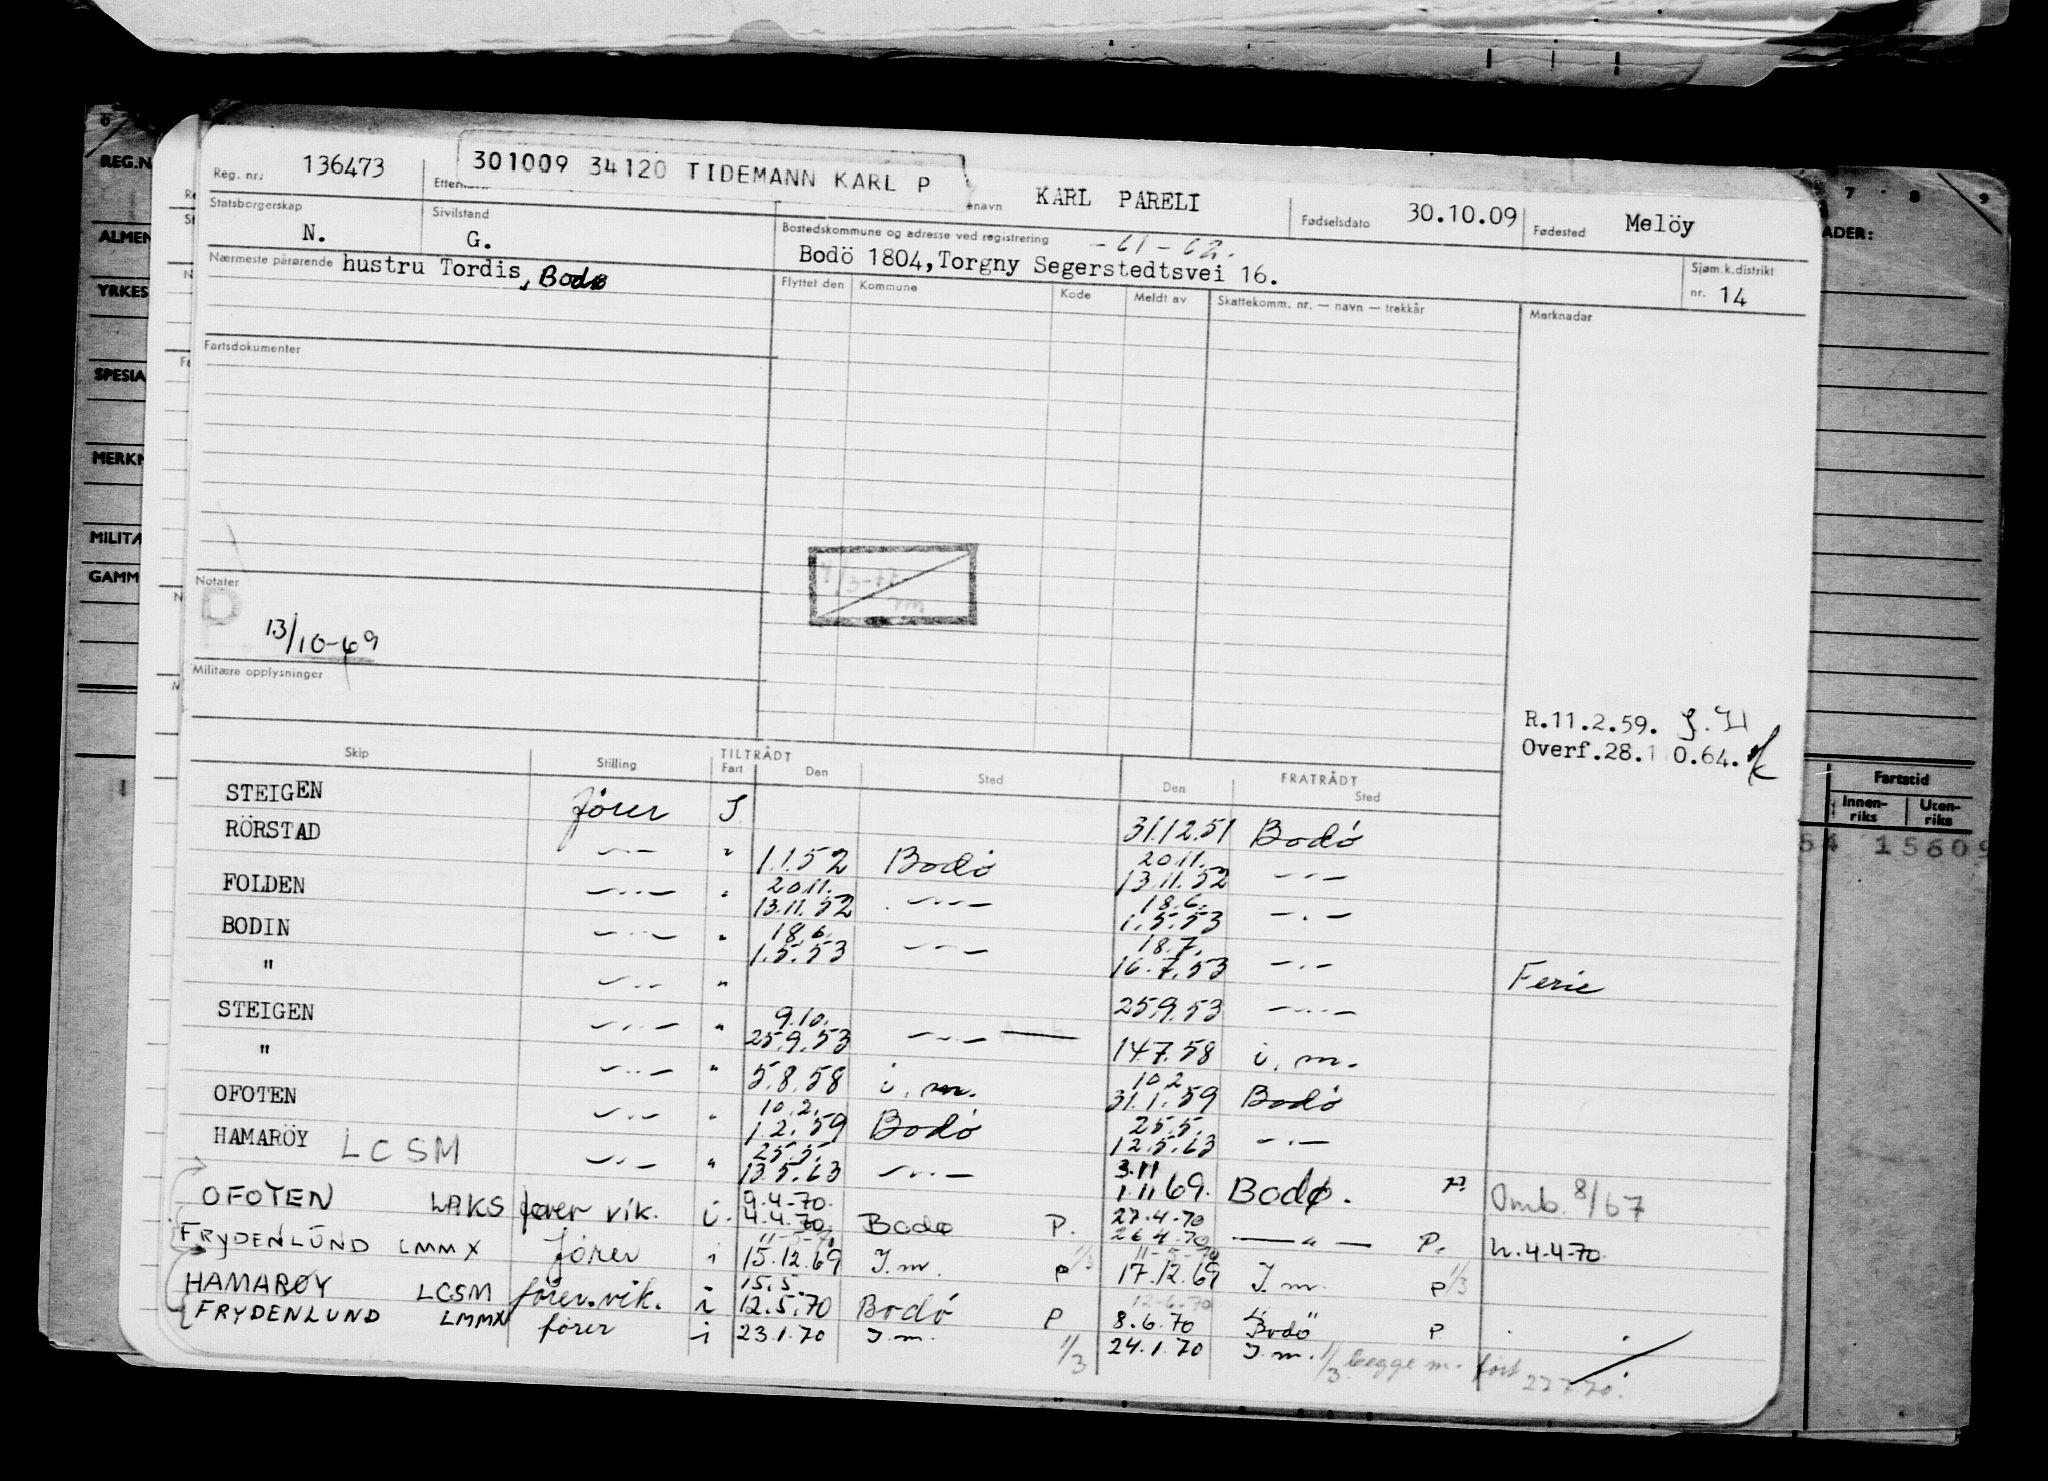 REG.N
ALMEN
YRKES
SPESIA
MERKN
MILITÆ
GAMM
7 8 9
ADER:
Fartstid
Innen-riks Uten-riks
64 15609
Reg. nr. 136473
301009 34120 TIDEMANN KARL P
enavn KARL PARELI
Fødselsdato 30.10.09
Fødested Melöy
Statsborgerskap N.
Sivilstand G.
Bostedskommune og adresse ved registrering -61-62.
Bodö 1804,Torgny Segerstedtsvei 16.
Sjøm.k.distrikt nr. 14
Nærmeste pårørende hustru Tordis, Bodø
Flyttet den Kommune Kode Meldt av Skattekomm. nr. — navn — trekkår Merknader
Fartsdokumenter
Notater
13/10-69
Militære opplysninger
R.11.2.59.
Overf.28.10.64.
TILTRÅDT FRATRÅDT
Skip Stilling Fart Den Sted Den Sted
STEIGEN fører I 31.12.51 Bodø
RÖRSTAD —"— " 1.1.52 Bodø 20.11. 13.11.52 —"—
FOLDEN —"— " 20.11. 13.11.52 —"— 18.6. 1.5.53 —"—
BODIN —"— " 18.6. 1.5.53 —"— 18.7. 16.7.53 —"—
" —"— " 25.9.53 —"— Ferie
STEIGEN —"— " 9.10. 25.9.53 —"— 14.7.58 i.m.
" —"— " 5.8.58 i.m. 10.2 31.1.59 Bodø
OFOTEN —"— " 10.2. 1.2.59 Bodø 25.5. 12.5.63 —"—
HAMARÖY LCSM —"— " 25.5. 13.5.63 —"— 3.11 1.11.69. Bodø. P. Omb. 8/67
OFOTEN LAKS fører vik. i. 9.4.70. 4.4.70. Bodø P. 27.4.70 26.4.70 —"— P. n.4.4.70.
FRYDENLUND LMMX fører i 11-5-70 15.12.69 I.m. P 1/3 11-5-70 17.12.69 I.m. P 1/3
HAMARØY LCSM fører.vik. i 15.5. 12.5.70 Bodø P 12-6-70 8.6.70 "Bodö" P
FRYDENLUND LMMX fører i 23.1.70 I.m. 1/3 24.1.70 I.m. 1/3 begge m. ført 27770.